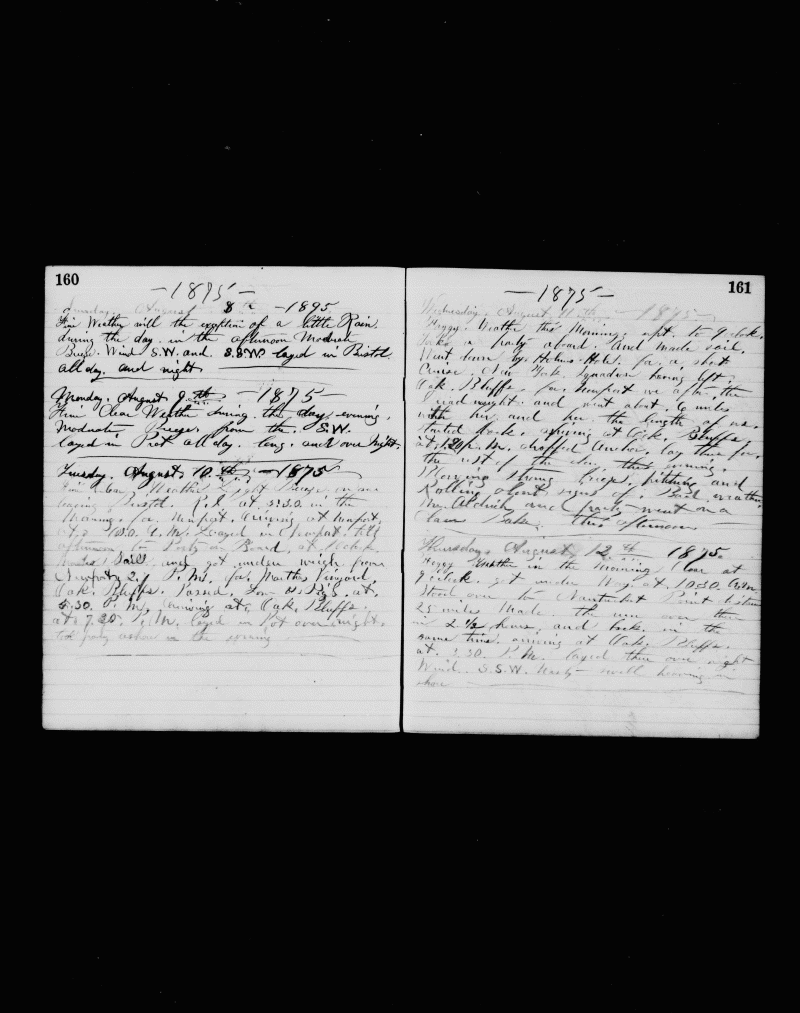 160
—1895—
Sunday, August 8th —1895
Fine Weather with the exception of a little Rain
during the day. in the afternoon Moderate
Breeze. Wind S.W. and. S.S.W. layed in Bristol
all day. and night
Monday, August, 9th —1875—
Fine Clear Weather during. the day evening,
Moderate Breeze from the. S.W.
layed in Port all day. and over Night.
Tuesday. August, 10th, —1875
Fine Clear Weather Light Breeze
leaving Bristol. R.I. at. 5:30. in the
Morning. for. Newport. arriving at Newport.
at. A.M. Layed in Newport. till
afternoon Party on Board. at
Sail and got under weigh from
Newport P.M. for. Marthas Vineyard,
Oak. Bluffs. Passed. at.
5.30. P. M. arriving at, Oak. Bluffs.
at 7.20. P. M. layed in Port over night.
party ashore in the evening
161
—1875—
Wednesday. August. 11th —1875—
Foggy. Weather this Morning. up to 9 oclock.
Took a party aboard. And made sail.
Went down by. Holms Hole. for. a. short
Cruise. New York Squadron having left.
Oak. Bluffs. for. Newport we after. the
and went about. 6 miles
with her, and the length of us.
Started Back. arriving at Oak. Bluffs,
at. P.M. dropped Anchor. lay there for,
the rest of the day, this evening.
Blowing Strong Breeze, pitching and
Rolling about signs of. Bad weather
Mr. Aldrich and party went on a
Clam Bake. this afternoon
Thursday, August 12th 1875
Foggy Weather in the Morning Clear at
9 oclock. got under Way. at. 10:30. A.M.
Stood over to Nantucket Point distance
25 miles Made the run over there
in 2 1/2 hours, and back. in the
same time. arriving at Oak. Bluffs.
at. 3.30. P. M. layed there over night
Wind. S.S.W. swell heaving in
shore